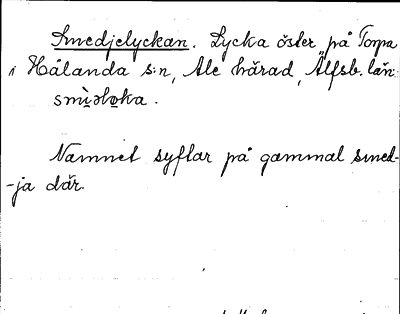 Smedjelyckan. Lycka öster på Torpa
i Hålanda s:n, Ale härad, Älfsb. län.
smìəlo̥ka.
Namnet syftar på gammal smed-
-ja där.